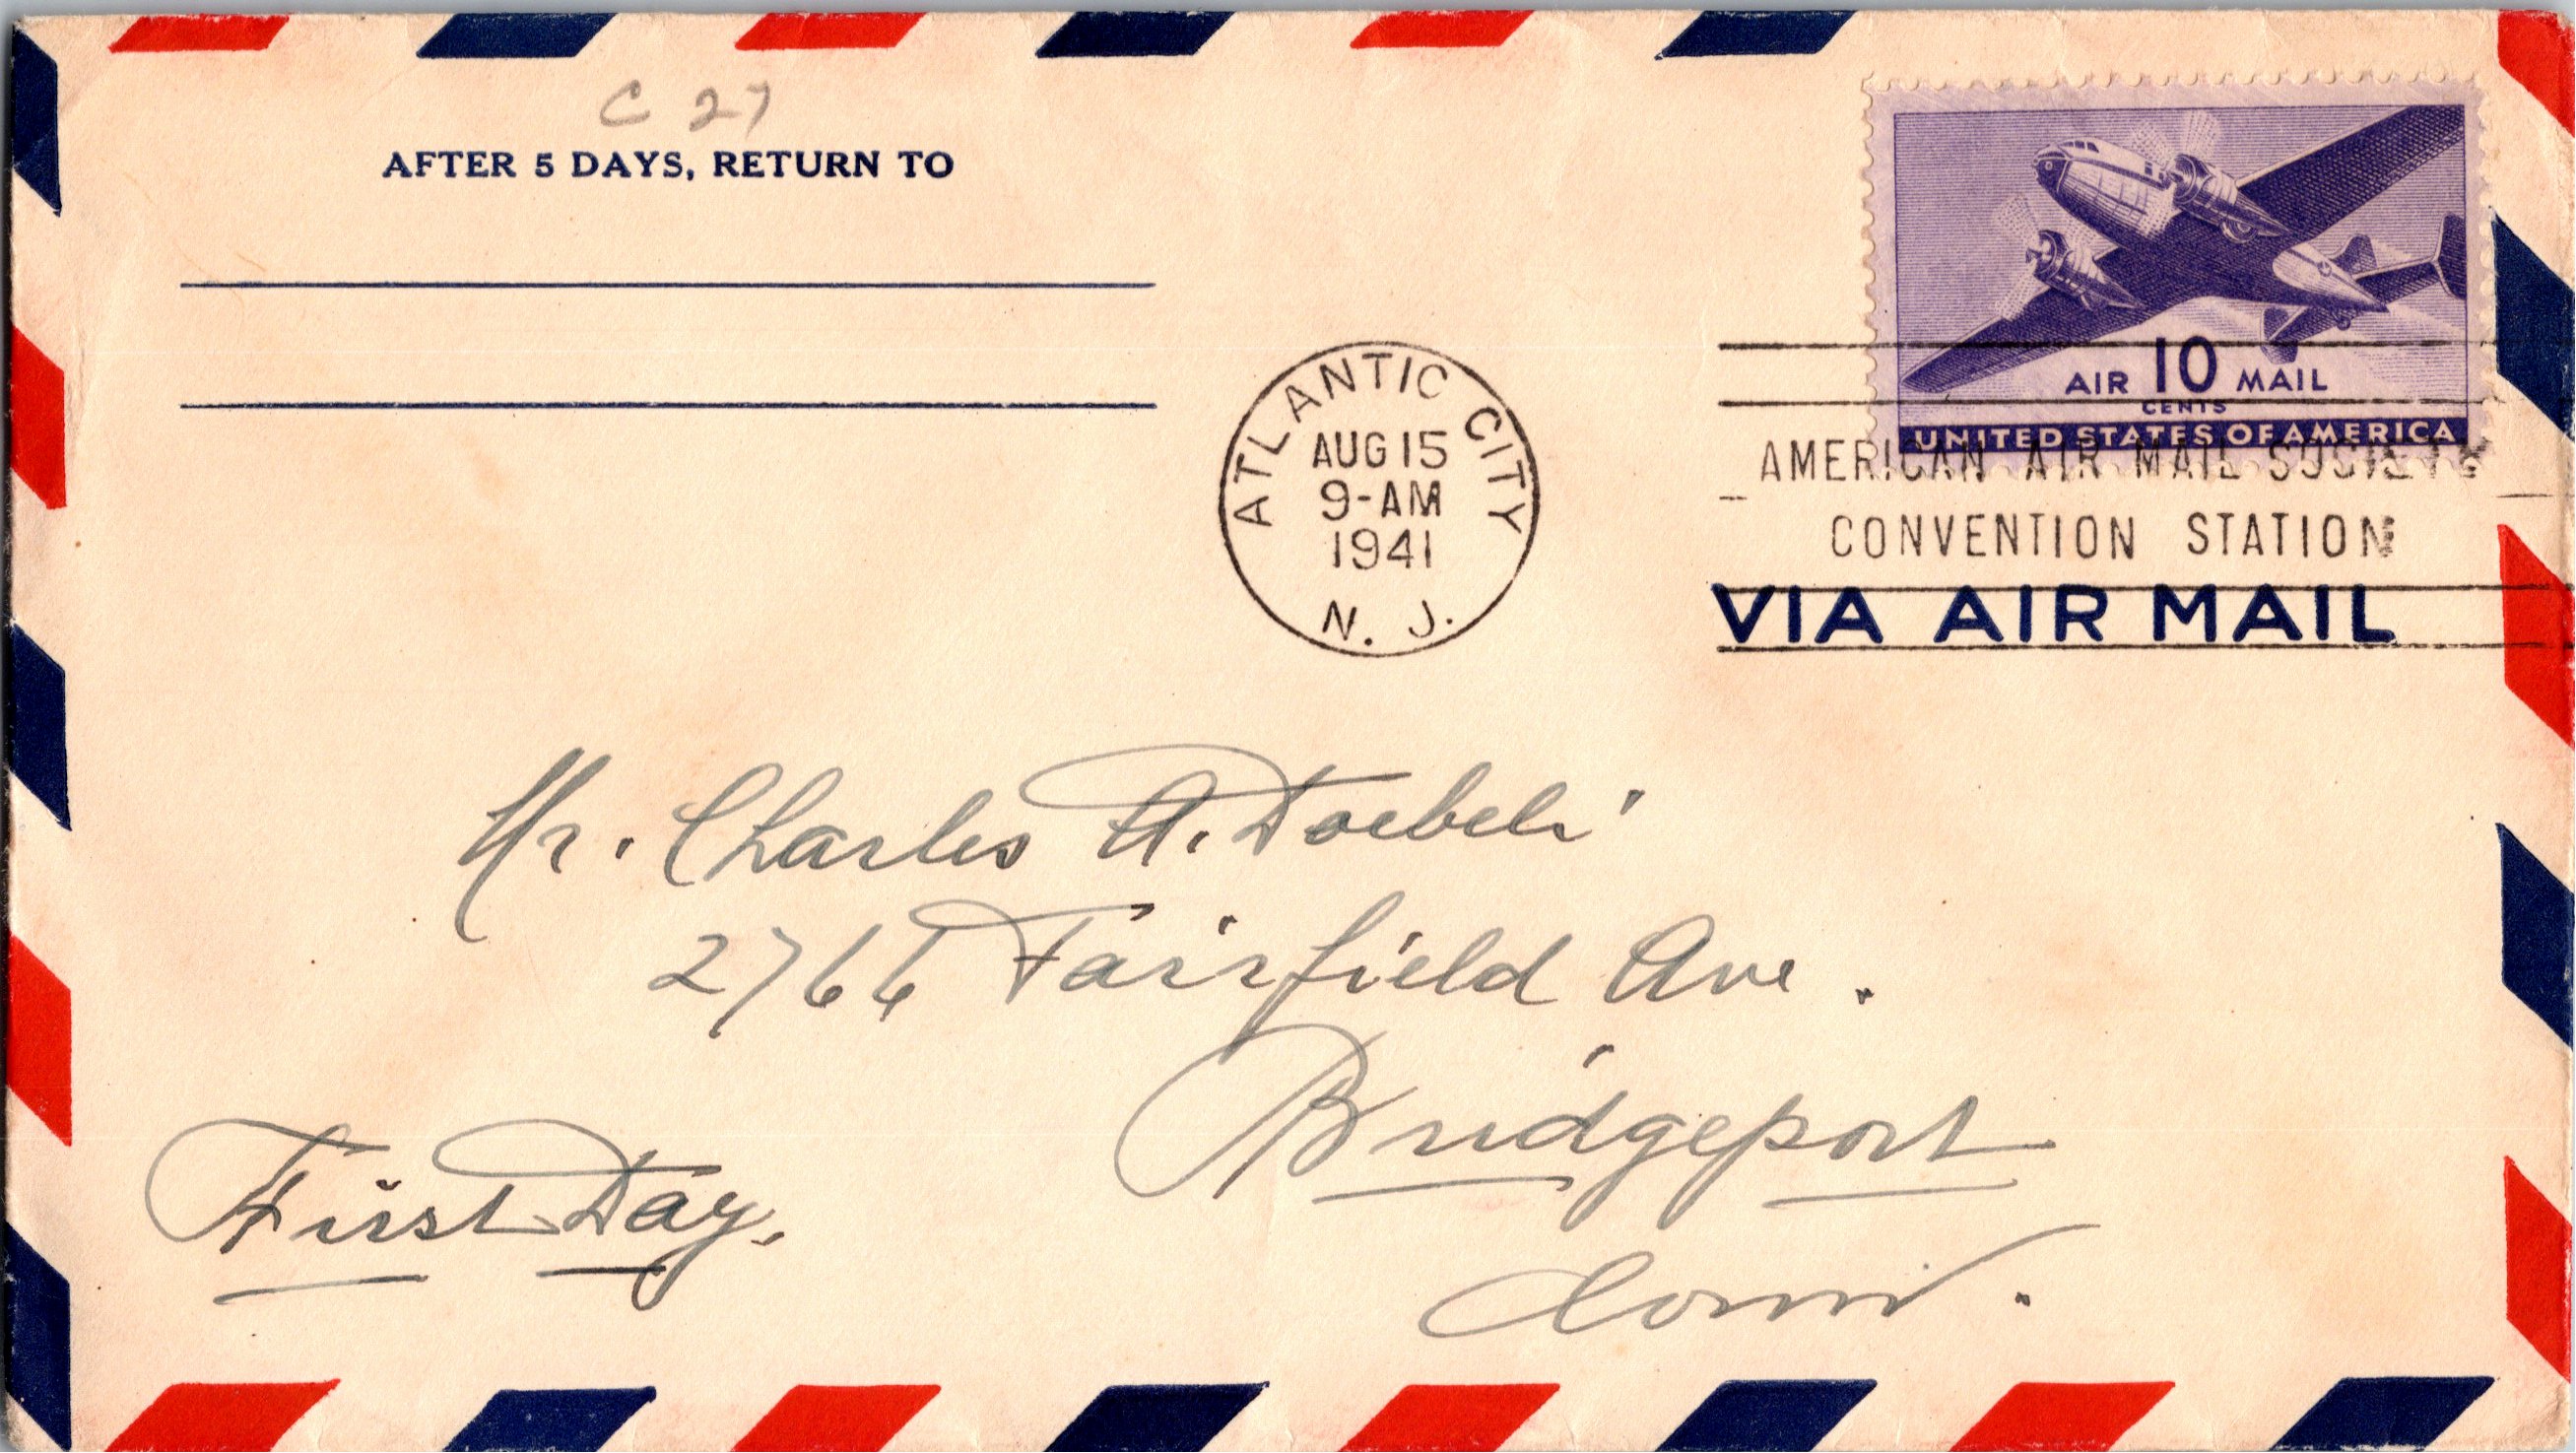 C 27
AFTER 5 DAYS, RETURN TO
AIR 10 MAIL
CENTS
UNITED STATES OF AMERICA
ATLANTIC CITY
AUG 15
9-AM
1941
N. J.
AMERICAN AIR MAIL SOCIETY
CONVENTION STATION
VIA AIR MAIL
Mr. Charles A. Doebeli
2766 Fairfield Ave.
Bridgeport
Conn.
First Day.